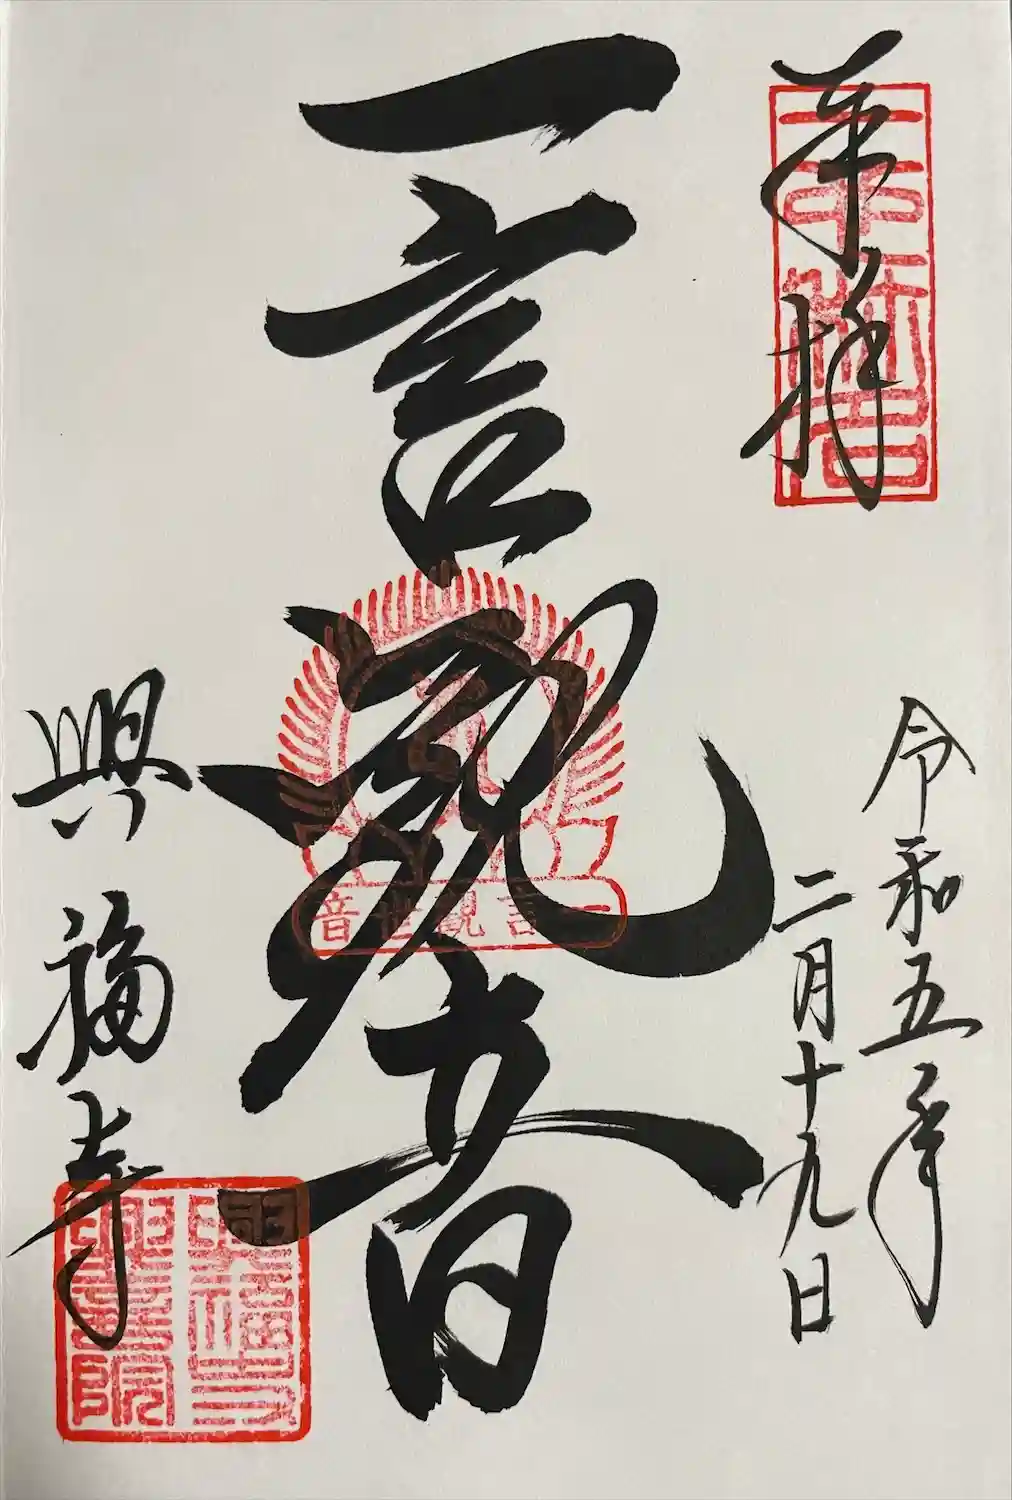 奉拝
令和五年
二月十九日
一言観音
一言觀世音
興福寺
興福寺